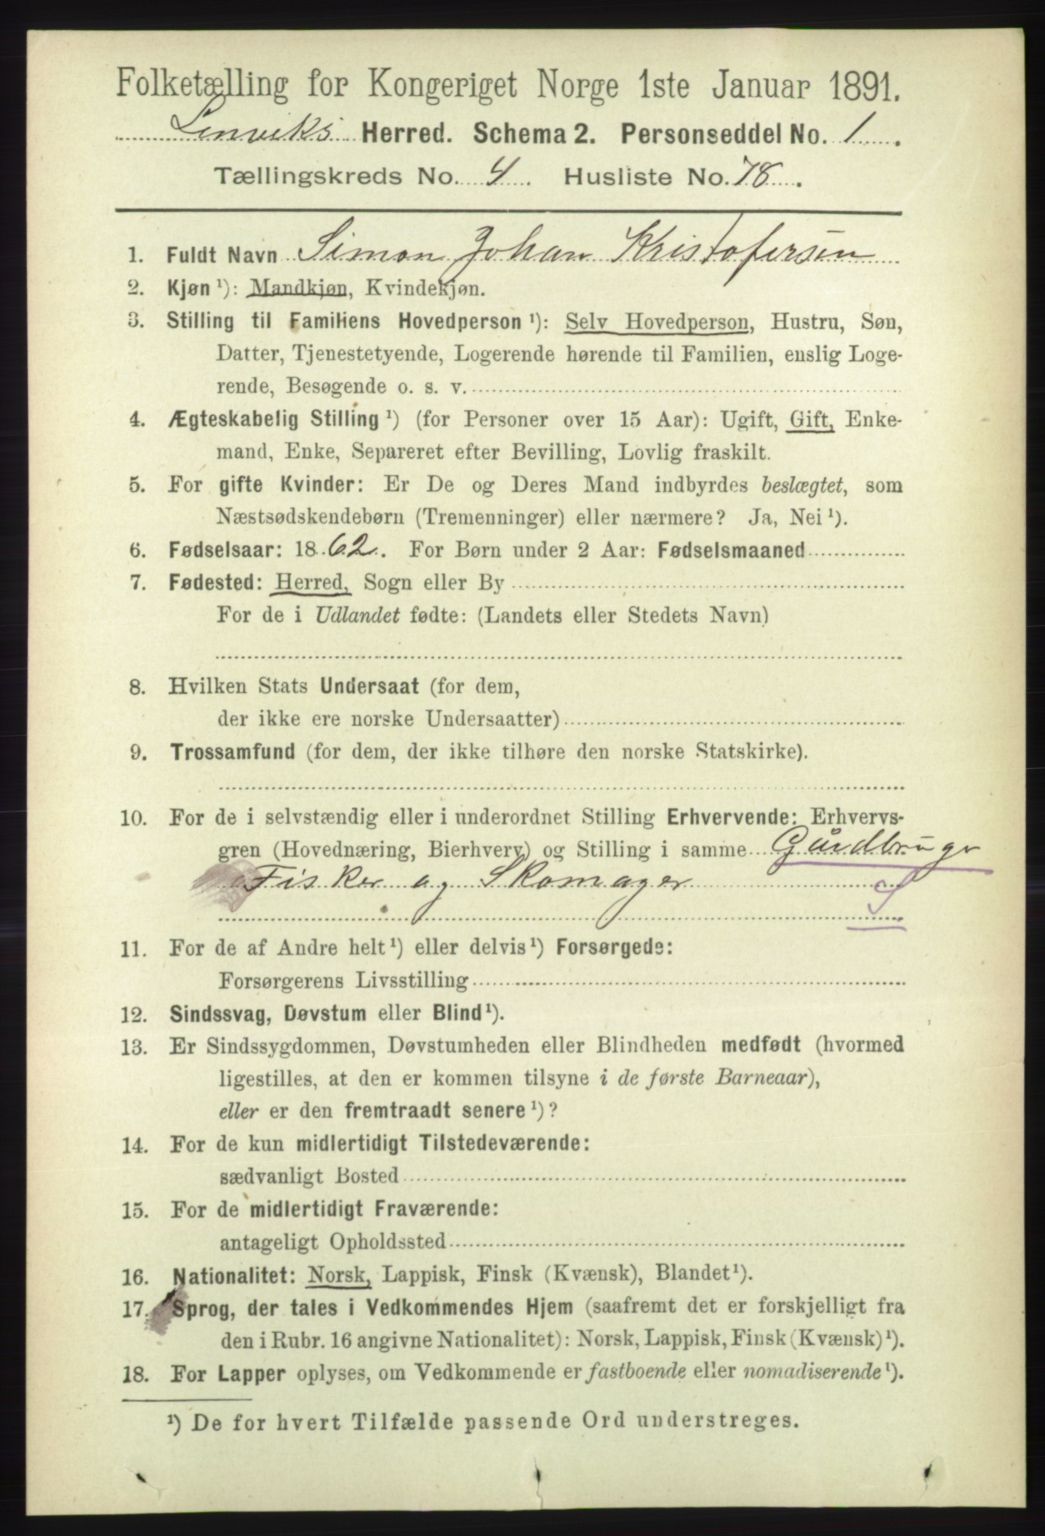 Folketælling for Kongeriget Norge 1ste Januar 1891.
Lenviks Herred. Schema 2. Personseddel No. 1.
Tællingskreds No. 4. Husliste No. 78.
1. Fuldt Navn Simon Johan Kristofersen
2. Kjøn ¹): Mandkjøn, Kvindekjøn.
3. Stilling til Familiens Hovedperson ¹): Selv Hovedperson, Hustru, Søn,
Datter, Tjenestetyende, Logerende hørende til Familien, enslig Loge-
rende, Besøgende o. s. v.
4. Ægteskabelig Stilling ¹) (for Personer over 15 Aar): Ugift, Gift, Enke-
mand, Enke, Separeret efter Bevilling, Lovlig fraskilt.
5. For gifte Kvinder: Er De og Deres Mand indbyrdes beslægtet, som
Næstsødskendebørn (Tremenninger) eller nærmere? Ja, Nei ¹).
6. Fødselsaar: 1862. For Børn under 2 Aar: Fødselsmaaned
7. Fødested: Herred, Sogn eller By
For de i Udlandet fødte: (Landets eller Stedets Navn)
8. Hvilken Stats Undersaat (for dem,
der ikke ere norske Undersaatter)
9. Trossamfund (for dem, der ikke tilhøre den norske Statskirke).
10. For de i selvstændig eller i underordnet Stilling Erhvervende: Erhvervs-
gren (Hovednæring, Bierhverv) og Stilling i samme Gårdbruger
Fisker og Skomager
S
11. For de af Andre helt ¹) eller delvis ¹) Forsørgede:
Forsørgerens Livsstilling
12. Sindssvag, Døvstum eller Blind ¹).
13. Er Sindssygdommen, Døvstumheden eller Blindheden medfødt (hvormed
ligestilles, at den er kommen tilsyne i de første Barneaar),
eller er den fremtraadt senere ¹)?
14. For de kun midlertidigt Tilstedeværende:
sædvanligt Bosted
15. For de midlertidigt Fraværende:
antageligt Opholdssted
16. Nationalitet: Norsk, Lappisk, Finsk (Kvænsk), Blandet ¹).
17. Sprog, der tales i Vedkommendes Hjem (saafremt det er forskjelligt fra
den i Rubr. 16 angivne Nationalitet): Norsk, Lappisk, Finsk (Kvænsk) ¹).
18. For Lapper oplyses, om Vedkommende er fastboende eller nomadiserende ¹).
¹) De for hvert Tilfælde passende Ord understreges.